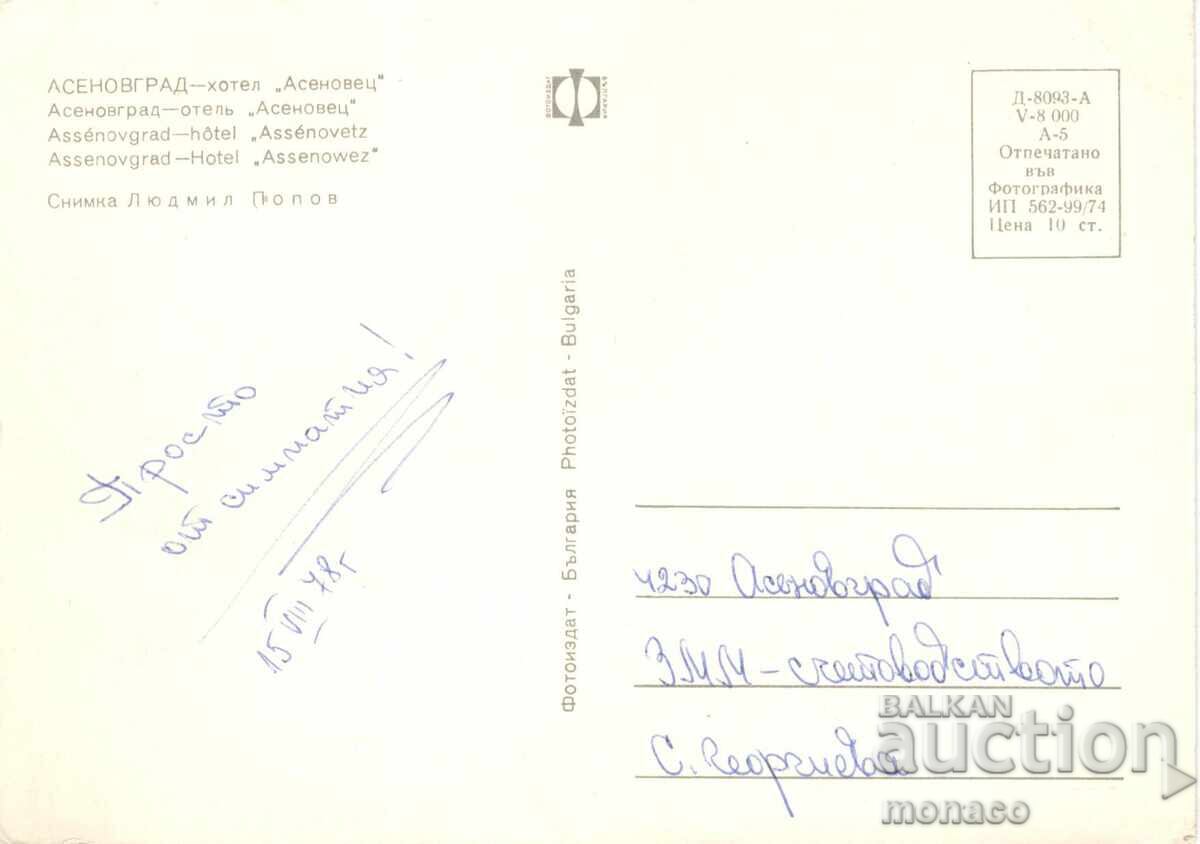 АСЕНОВГРАД—хотел „Асеновец"
Асеновград—отель „Асеновец"
Assénovgrad—hôtel „Assénovetz
Assenovgrad—Hotel „Assenowez"
Снимка Людмил Попов
ФОТОИЗДАТ
БЪЛГАРИЯ
Д-8093-А
V-8 000
А-5
Отпечатано
във
Фотографика
ИП 562-99/74
Цена 10 ст.
Просто
от симпатия!
15 VIII 78г
Фотоиздат - България Photoïzdat - Bulgaria
4230 Асеновград
ЗММ - счетоводството
С. Георгиева
BALKAN
auction
monaco